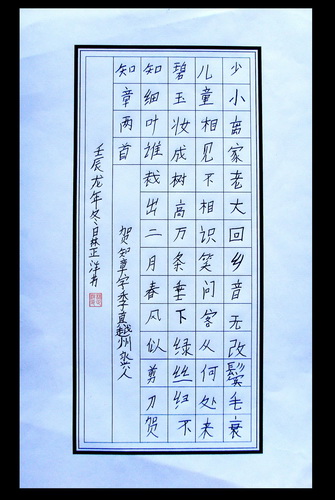 少小离家老大回乡音无改鬓毛衰
儿童相见不相识笑问客从何处来
碧玉妆成树高万条垂下绿丝绦不
知细叶谁裁出二月春风似剪刀贺
知章两首
贺知章字季真越州永兴人
壬辰龙年冬日林正洋书